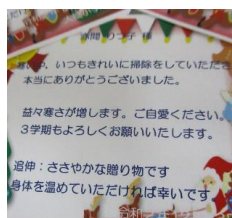 赤間 りつ子 様
いつもきれいに掃除をしていただき
本当にありがとうございました。
益々寒さが増します。ご自愛ください。
3学期もよろしくお願いいたします。
追伸：ささやかな贈り物です
身体を温めていただければ幸いです